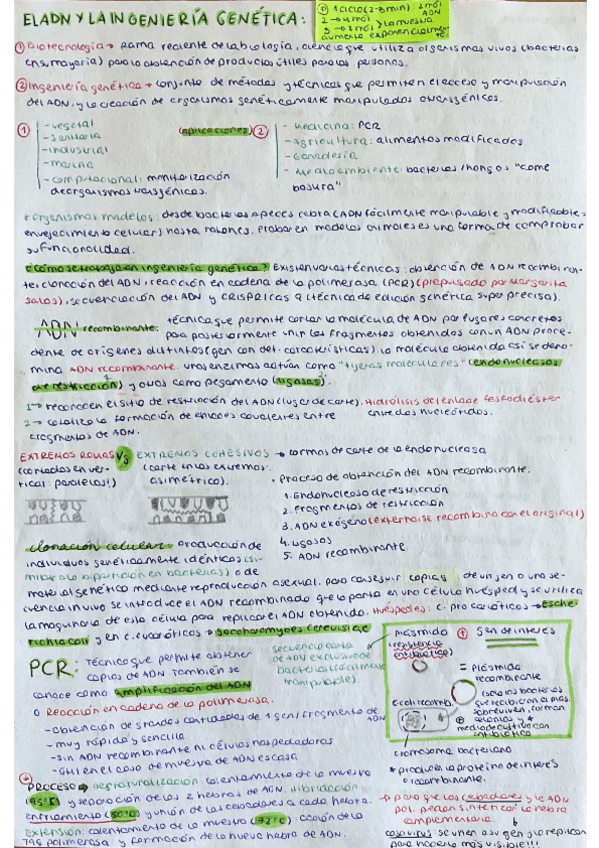 EL ADN Y LA INGENIERÍA GENÉTICA:
1 ciclo (2-3 min) 2 mol
2 → 4 mol
3 → 8 mol
aumenta exponencialmente
① Biotecnología → Rama reciente de la biología, ciencia que utiliza organismos vivos (bacterias
en su mayoría) para la obtención de productos útiles para las personas.
② Ingeniería genética → conjunto de métodos y técnicas que permiten el acceso y manipulación
del ADN, y la creación de organismos genéticamente manipulados o transgénicos.
① - vegetal
- Sanitaria
- industrial
- marina
- computacional: monitorización
de organismos transgénicos.
(aplicaciones) ② - Medicina: PCR
- Agricultura: alimentos modificados
- Ganadería
- Medio ambiente: bacterias/hongos "come
basura"
* organismos modelos: desde bacterias a peces cebra (ADN fácilmente manipulable y modificable:
envejecimiento celular) hasta ratones. Probar en modelos animales es una forma de comprobar
su funcionalidad.
¿Cómo se trabaja en ingeniería genética? Existen varias técnicas: obtención de ADN recombinan-
te, clonación del ADN, reacción en cadena de la polimerasa (PCR) (propulsado por Margarita
Salas), secuenciación del ADN y CRISPR/CAS 9 (técnica de edición genética super precisa).
ADN recombinante: técnica que permite cortar la molécula de ADN por lugares concretos
para posteriormente unir los fragmentos obtenidos con un ADN proce-
dente de orígenes distintos (gen con det. características). La molécula obtenida así se deno-
mina ADN recombinante. Unas enzimas actúan como "tijeras moleculares" (endonucleasas
de restricción) y otras como pegamento (ligasas).
1 → reconocen el sitio de restricción del ADN (lugar de corte). Hidrólisis del enlace fosfodiéster
entre dos nucleótidos.
2 → cataliza la formación de enlaces covalentes entre
fragmentos de ADN.
EXTREMOS ROMOS Vs EXTREMOS COHESIVOS → formas de corte de la endonucleasa
(cortados en ver-
tical: paralelos)
(corte en los extremos:
asimétrico).
• Proceso de obtención del ADN recombinante:
1. Endonucleasa de restricción
2. Fragmentos de restricción
3. ADN exógeno (externo: se recombina con el original)
4. Ligasas
5. ADN recombinante
Clonación celular: producción de
individuos genéticamente idénticos (si-
milar a la bipartición en bacterias) o de
material genético mediante reproducción asexual. Para conseguir copias de un gen o una se-
cuencia in vivo se introduce el ADN recombinado que lo porta en una célula huésped y se utiliza
la maquinaria de esta célula para replicar el ADN obtenido. Huéspedes: c. procarióticas → Esche-
richia coli y en c. eucarióticas → Saccharomyces cerevisiae
PCR: Técnica que permite obtener
copias de ADN. También se
conoce como amplificación del ADN
o Reacción en cadena de la polimerasa.
- obtención de grandes cantidades de 1 gen/fragmento de ADN
- muy rápida y sencilla
- sin ADN recombinante ni células hospedadoras
- útil en el caso de muestra de ADN escasa
secuencia corta
de ADN exclusiva de
bacterias (fácilmente
manipulable).
Plásmido
(resistencia
antibiótico)
+ Gen de interés
= Plásmido
recombinante
(solo las bacterias
que reciban el plás.
sobreviven, forman
colonias y *
medio de cultivo con
antibiótico
E. coli recomb.
cromosoma bacteriano
* producen la proteína de interés
o recombinante.
* PROCESO → Desnaturalización: calentamiento de la muestra
(95°C) y separación de las 2 hebras de ADN. Hibridación:
enfriamiento (50°C) y unión de los cebadores a cada hebra.
Extensión: calentamiento de la muestra (72°C): acción de la
TAQ polimerasa y formación de la nueva hebra de ADN.
→ para que los cebadores y la ADN
pol. puedan sintetizar la hebra
complementaria.
se unen a su gen y lo replican
para hacerlo más visible!!!